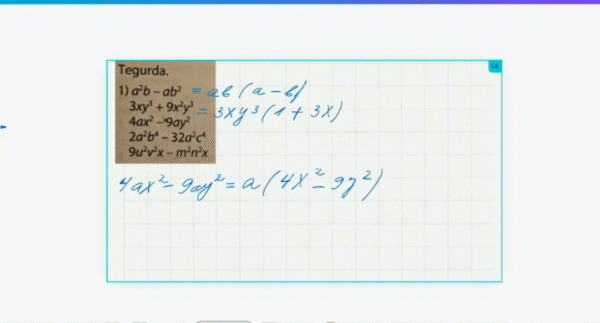 Tegurda.
1) a²b – ab² = ab (a – b)
3xy³ + 9x²y³ = 3xy³ (1 + 3x)
4ax² – 9ay²
2a²b⁴ – 32a²c⁴
9u²v²x – m²n²x
4ax² – 9ay² = a (4x² – 9y²)